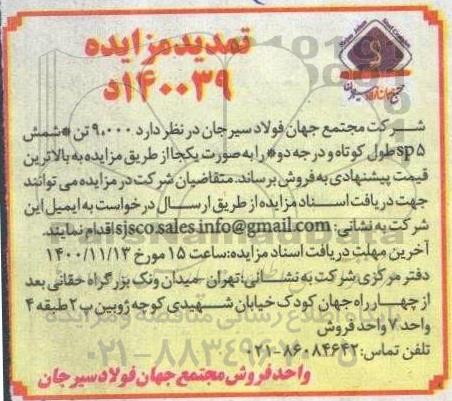 تمدید مزایده
۱۴۰۰۳۹د
شرکت مجتمع جهان فولاد سیرجان در نظر دارد ۹،۰۰۰ تن *شمش
sp۵ طول کوتاه و درجه دو* را به صورت یکجا از طریق مزایده به بالاترین
قیمت پیشنهادی به فروش برساند. متقاضیان شرکت در مزایده می توانند
جهت دریافت اسناد مزایده از طریق ارسال درخواست به ایمیل این
شرکت به نشانی: sjsco.sales.info@gmail.com اقدام نمایند.
آخرین مهلت دریافت اسناد مزایده: ساعت ۱۵ مورخ ۱۴۰۰/۱۱/۱۳
دفتر مرکزی شرکت به نشانی: تهران -میدان ونک بزرگراه حقانی بعد
از چهارراه جهان کودک خیابان شهیدی کوچه ژوبین پ ۲ طبقه ۴
واحد ۷ واحد فروش
تلفن تماس: ۸۶۰۸۴۶۴۲-۰۲۱
واحد فروش مجتمع جهان فولاد سیرجان